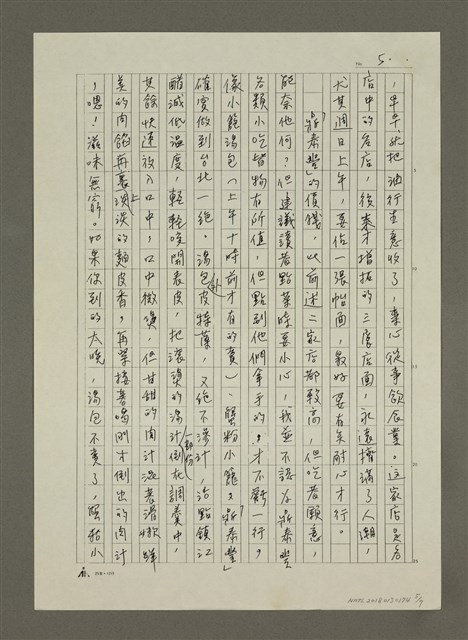 5.
，早早就把油行生意收了，專心從事飲食業。這家店是名
店中的名店，後來才增拓的三層店面，永遠擠滿了人潮，
尤其週日上午，要佔一張帖面，最好要有矢耐心才行。
「鼎泰豐」的價錢，以前述二家店都較高，但吃者願意，
能奈他何？但建議讀者點菜時要小心，我並不認為鼎泰豐
各類小吃皆物有所值，但點到他們拿手的，才不虛一行，
像小籠湯包（上午十時前才有的賣）、蟹粉小籠，「鼎泰豐」
確實做到台北一絕。湯包皮特薄，又絕不滲汁，沾點鎮江
醋減低溫度，輕輕咬開表皮，把滾燙的湯汁倒在調羹中，
其餘快速放入口中，口中微燙，但甘甜的肉汁混著滑嫩鮮
美的肉餡再裹上淡淡的麵皮香，再單接著喝剛才倒出的肉汁
，嗯！滋味無窮。如果你到的太晚，湯包不賣了，蟹粉小